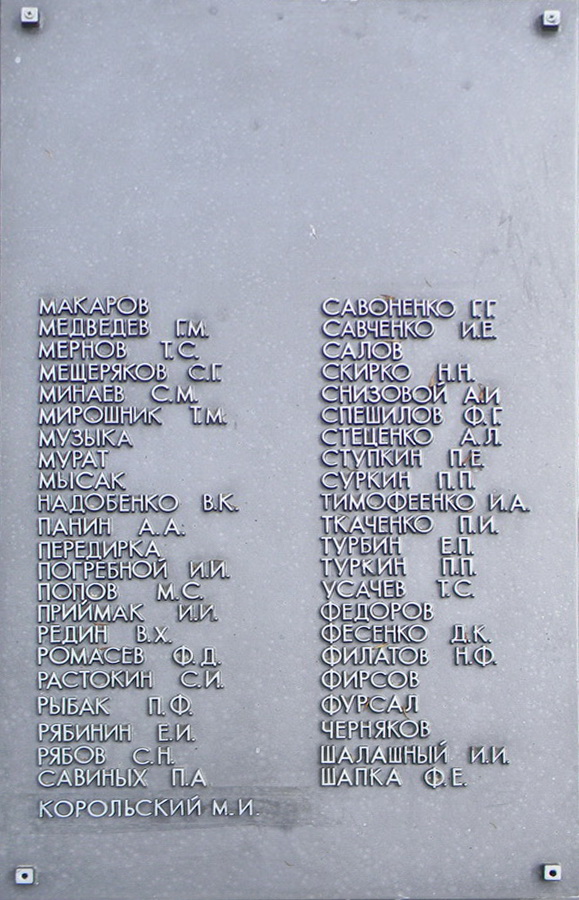 МАКАРОВ
МЕДВЕДЕВ Г.М.
МЕРНОВ Т.С.
МЕЩЕРЯКОВ С.Г.
МИНАЕВ С.М.
МИРОШНИК Т.М.
МУЗЫКА
МУРАТ
МЫСАК
НАДОБЕНКО В.К.
ПАНИН А.А.
ПЕРЕДИРКА
ПОГРЕБНОЙ И.И.
ПОПОВ М.С.
ПРИЙМАК И.И.
РЕДИН В.Х.
РОМАСЕВ Ф.Д.
РАСТОКИН С.И.
РЫБАК П.Ф.
РЯБИНИН Е.И.
РЯБОВ С.Н.
САВИНЫХ П.А
КОРОЛЬСКИЙ М.И.
САВОНЕНКО Г.Г.
САВЧЕНКО И.Е.
САЛОВ
СКИРКО Н.Н.
СНИЗОВОЙ А.И
СПЕШИЛОВ Ф.Г.
СТЕЦЕНКО А.Л.
СТУПКИН П.Е.
СУРКИН П.П.
ТИМОФЕЕНКО И.А.
ТКАЧЕНКО П.И.
ТУРБИН Е.П.
ТУРКИН П.П.
УСАЧЕВ Т.С.
ФЕДОРОВ
ФЕСЕНКО Д.К.
ФИЛАТОВ Н.Ф.
ФИРСОВ
ФУРСАЛ
ЧЕРНЯКОВ
ШАЛАШНЫЙ И.И.
ШАПКА Ф.Е.